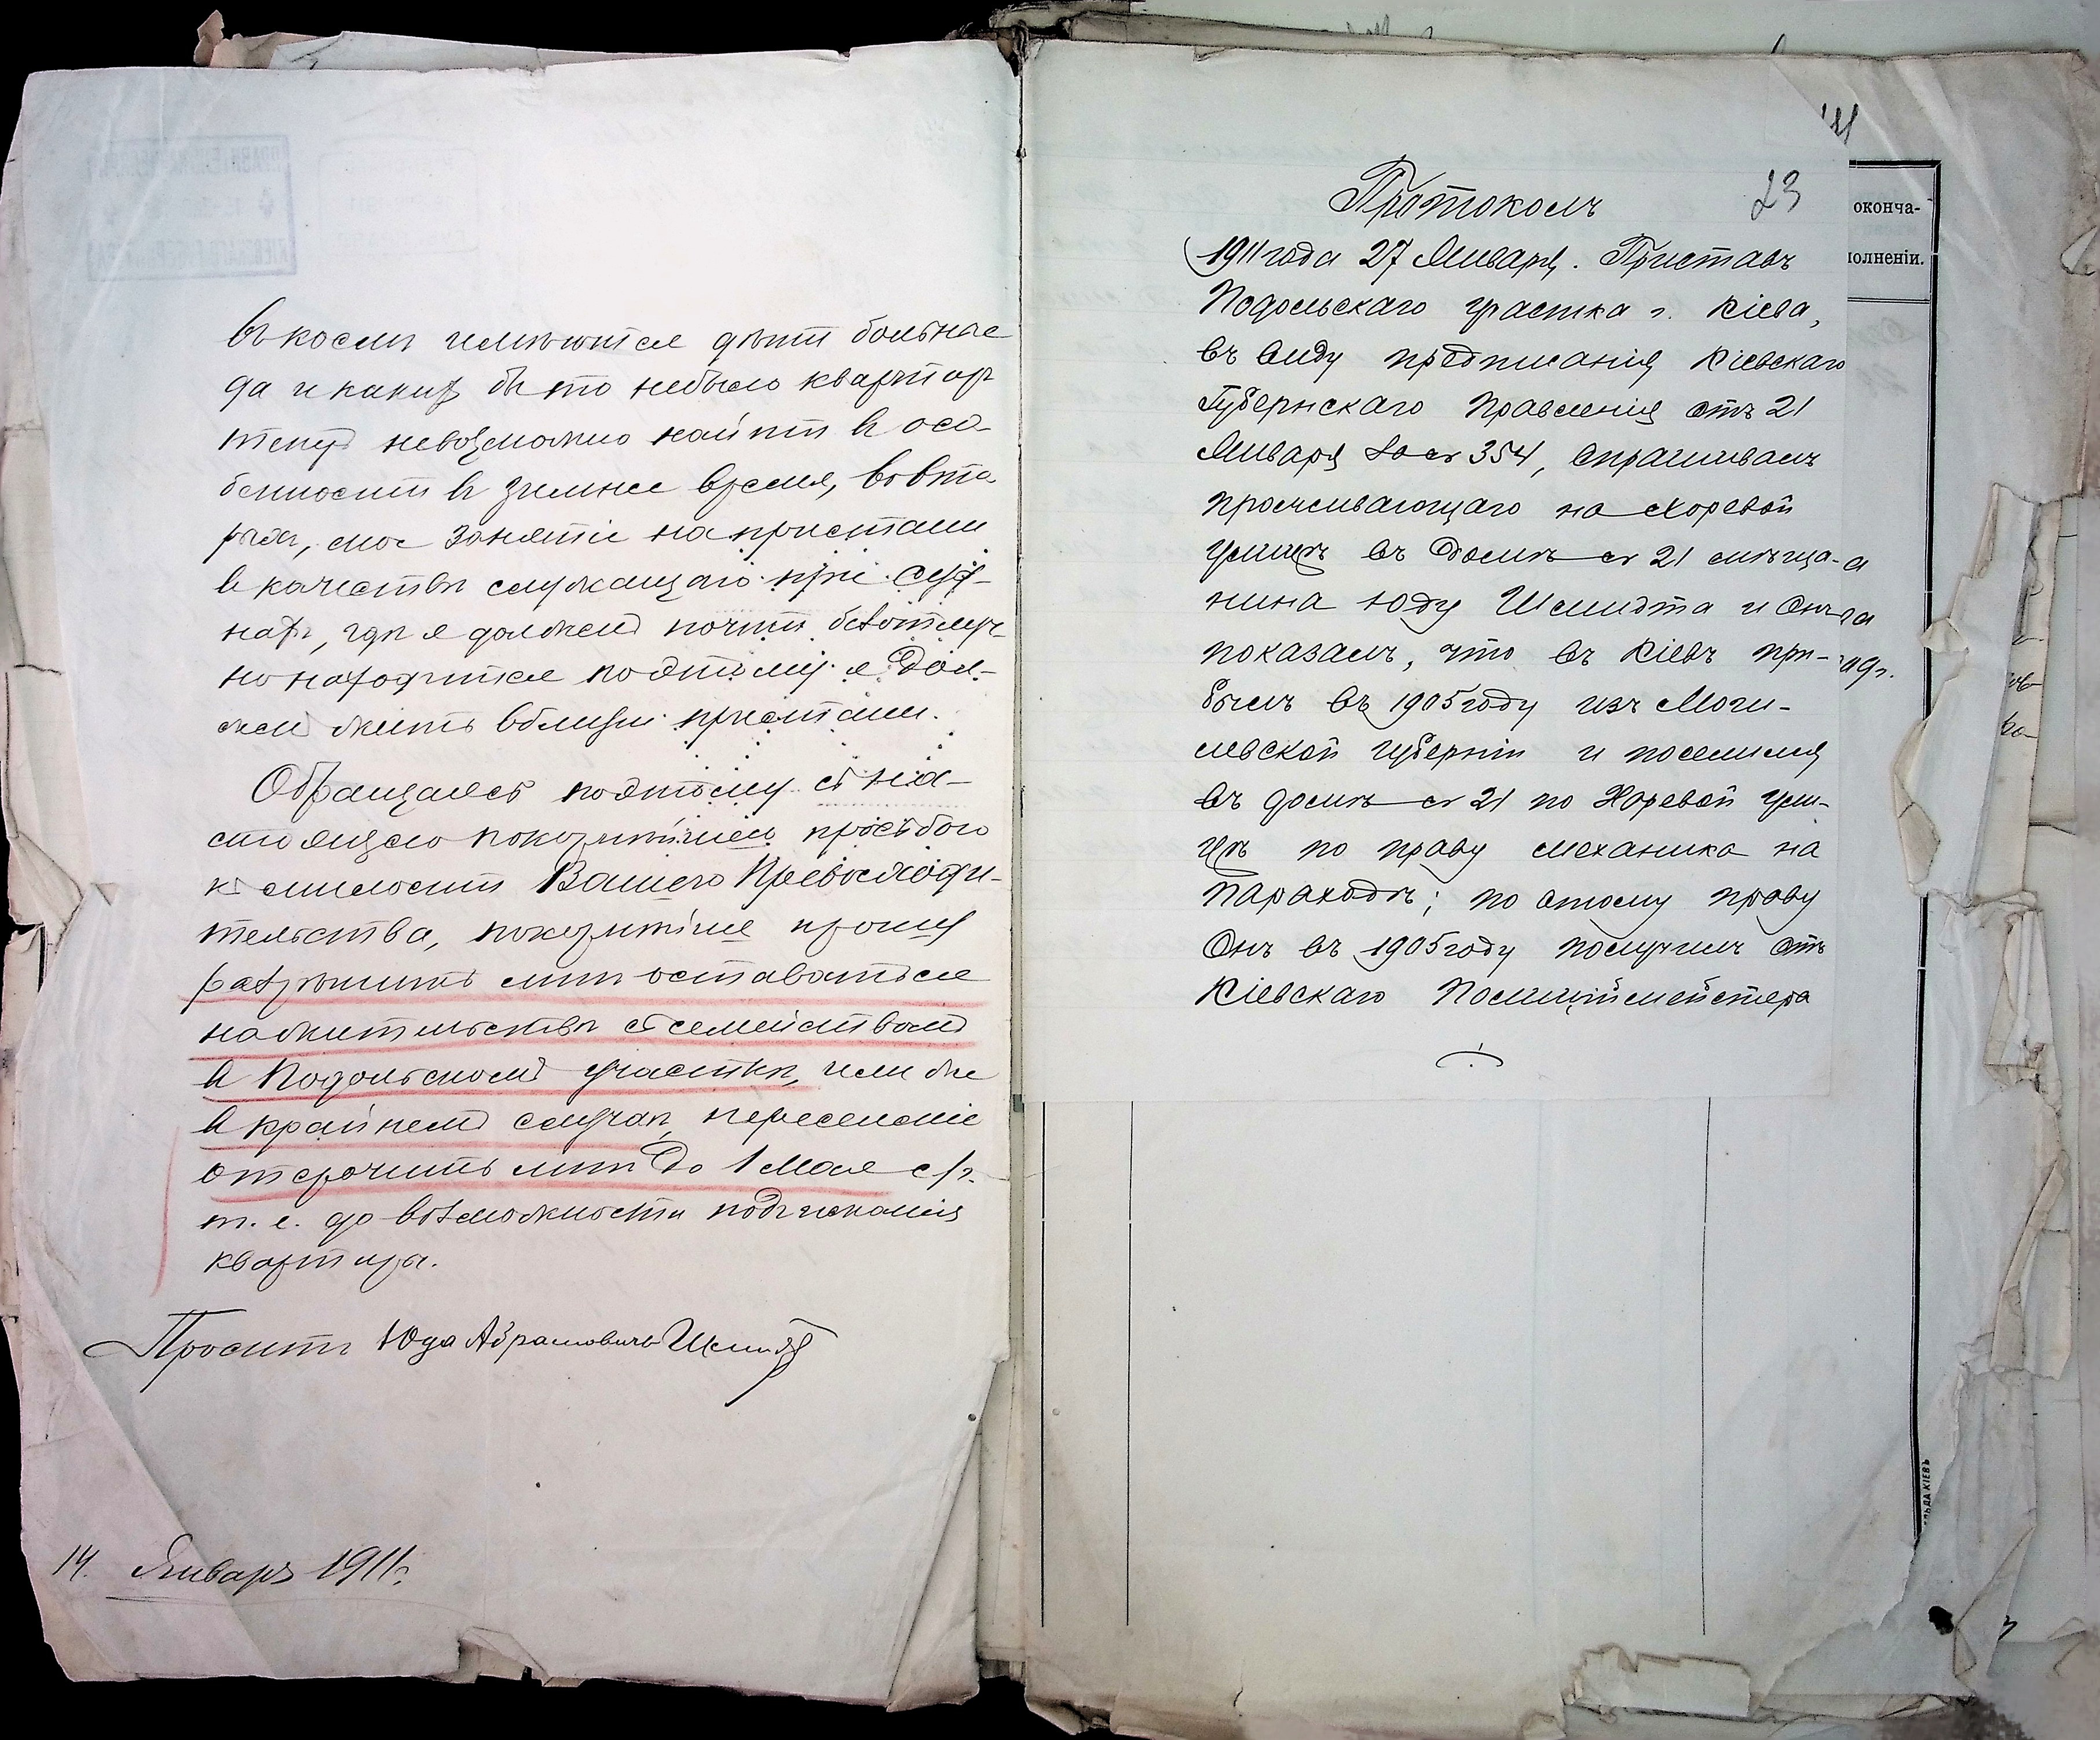 въ коемъ имѣются дѣти больные
да и какихъ бы то небыло квартиръ
теперь невозможно найти въ осо-
бенности въ зимнее время, вовто
рыхъ, мое занятіе на пристани
въ качествѣ служащаго при суд-
нахъ, гдѣ я долженъ почти безотлуч-
но находится поэтому я дол-
женъ жить вблизи пристани.
Обращаясь поэтому съ на-
стоящею покорнѣйшею просьбою
къ милости Вашего Превосходи-
тельства, покорнѣйше прошу
разрѣшить мнѣ оставаться
на жительствѣ съ семействомъ
въ Подольскомъ участкѣ, или же
въ крайнемъ случаѣ переселеніе
отсрочить мнѣ до 1 Мая с/г.
т. е. до возможности подысканія
квартиры.
Проситъ Юда Абрамовичъ Шмидт
14. Январь 1911г.
23
Протоколъ
1911 года 27 Января. Приставъ
Подольскаго участка г. Кіева,
въ виду предписанія Кіевскаго
Губернскаго Правленія отъ 21
Января за № 354, спрашивалъ
проживающаго на Хоревой
улицѣ въ домѣ № 21 мѣща-
нина Юду Шмидта и онъ
показалъ, что въ Кіевъ при-
былъ въ 1905 году изъ Моги-
левской губерніи и поселился
въ домѣ № 21 по Хоревой ули-
цѣ по праву механика на
параходѣ; по этому праву
Онъ въ 1905 году получилъ отъ
Кіевскаго Полиціймейстера
оконча-
полненіи.